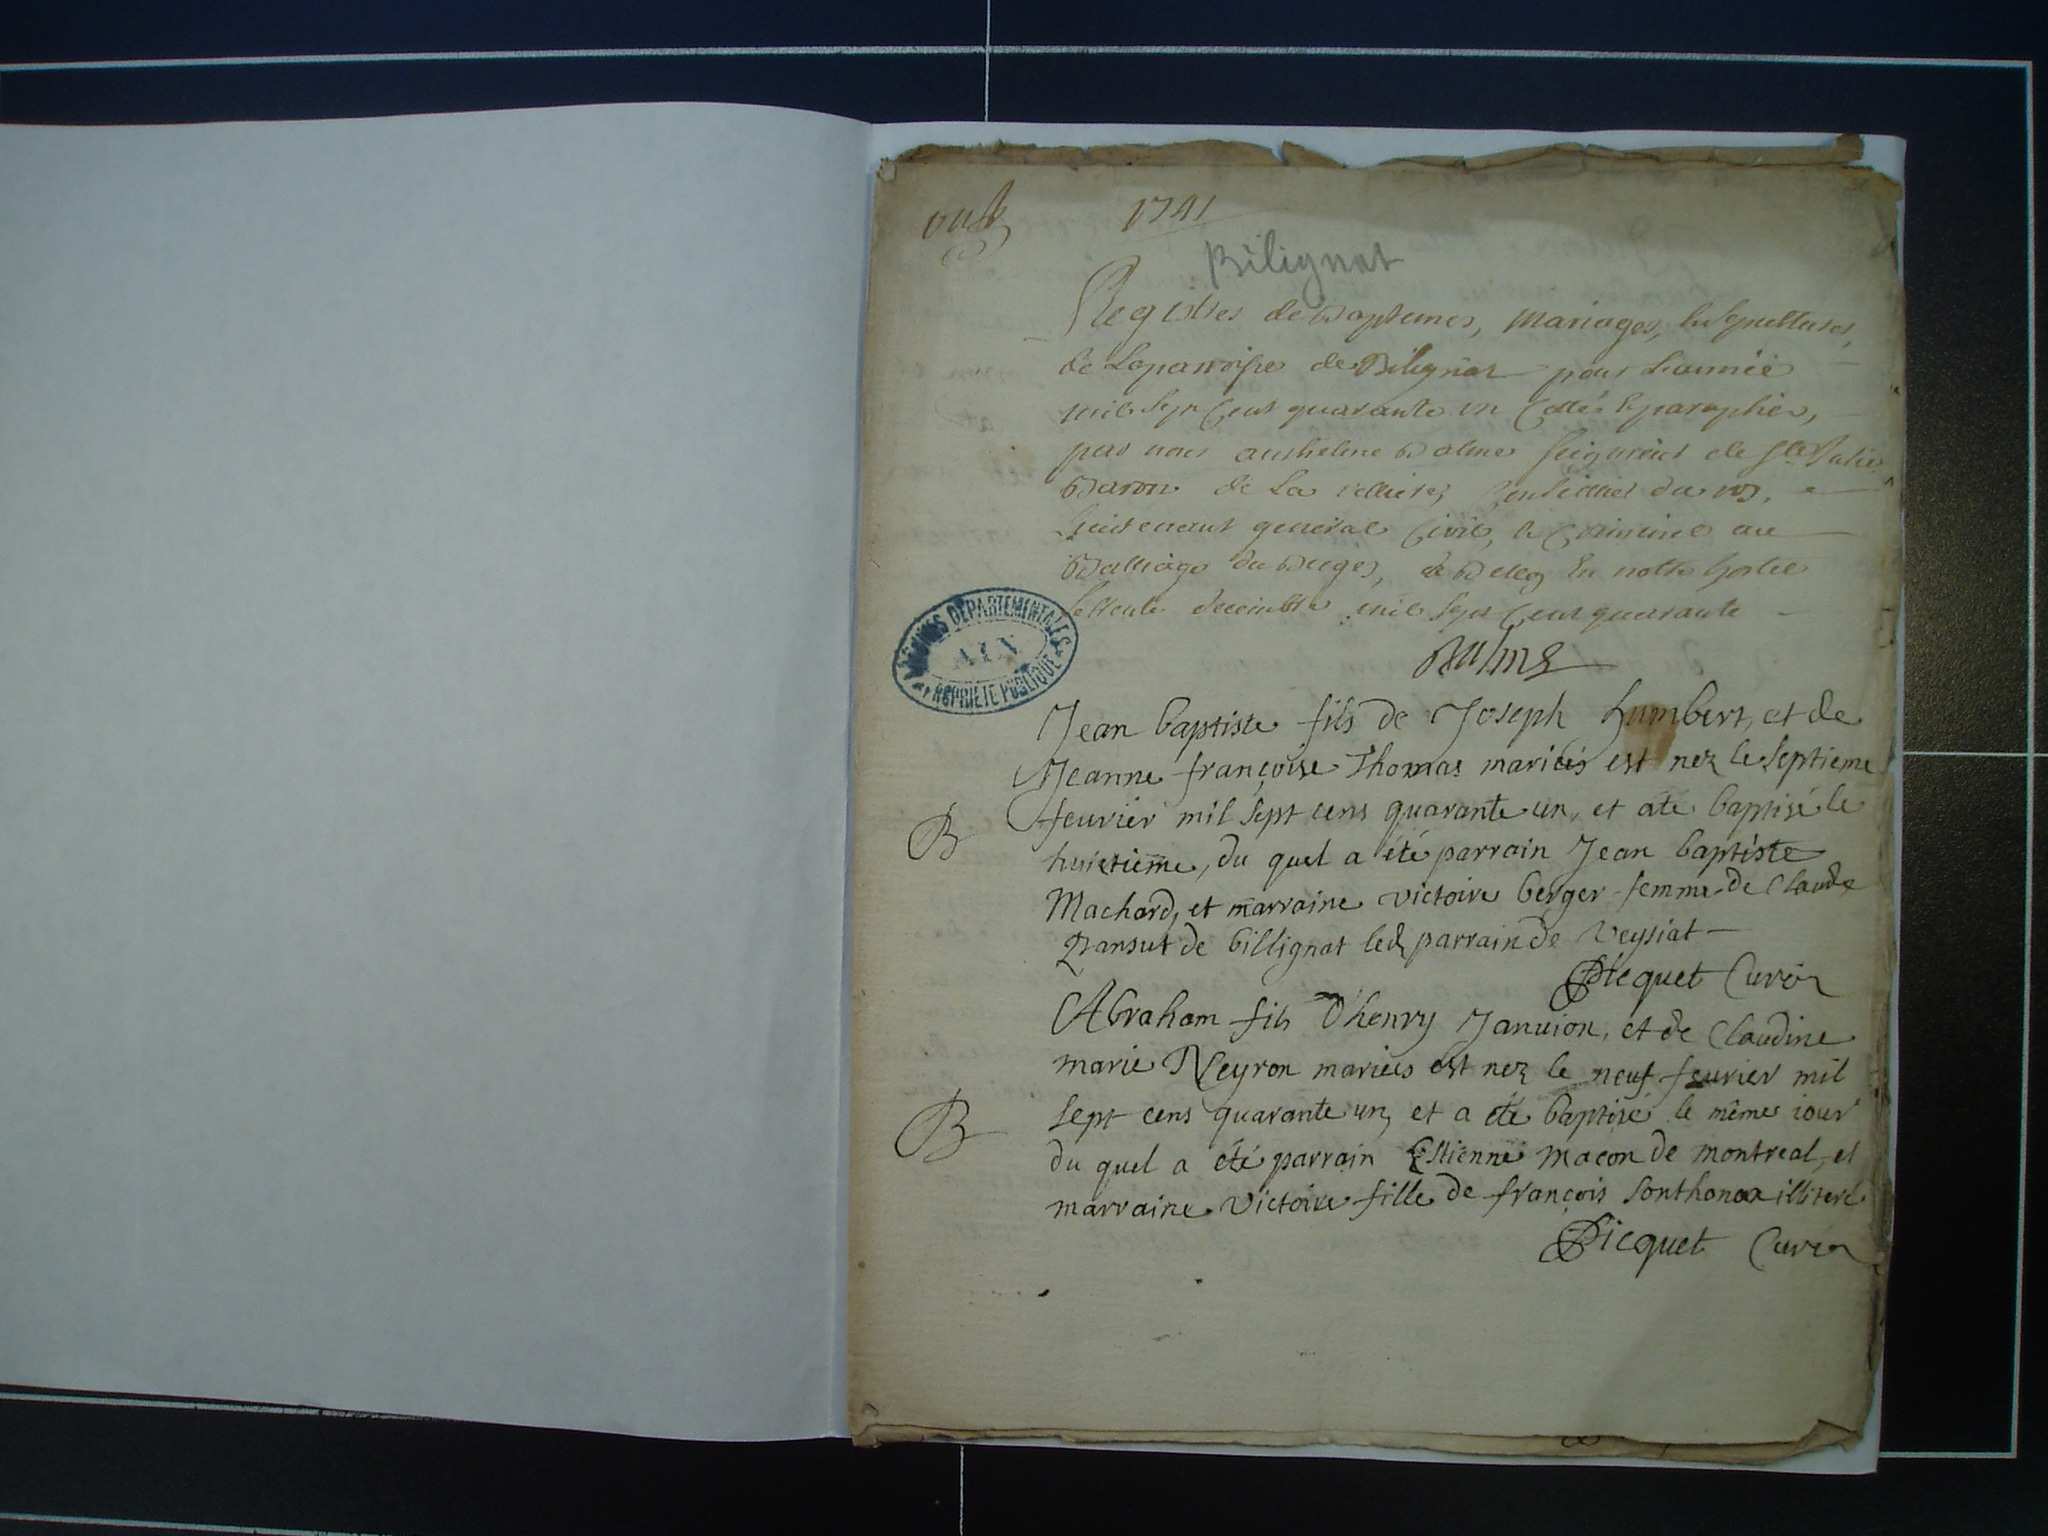 1741
Bilignat
Registres de Baptemes, Mariages, & Sepultures,
de Laparroisse de Bilignat pour L'année
mil Sept Cent quarante un Cotté & paraphé,
par nous anthelme Balme Seigneur de Ste Julie
Baron de La velliere, Conseiller du roy,
Lieutenant general Civil, & Criminel au
Balliage du Bugey, & Belley En notre hostel
le trente decembre mil Sept Cent quarante
Balme
ARCHIVES DEPARTEMENTALES
AIN
PROPRIETE PUBLIQUE
Jean baptiste fils de Joseph humbert, et de
Jeanne françoise Thomas mariés est nez le septieme
feurier mil sept cens quarante un, et a été baptisé le
B
huictieme, du quel a été parrain Jean baptiste
Machard, et marraine victoire berger femme de Claude
de billignat led parrain de Veysiat
Picquet Curé
Abraham fils D'henry Januion, et de Claudine
marie Neyron mariés est nez le neuf feurier mil
B
sept cens quarante un, et a été baptisé le même iour
du quel a été parrain Estienne macon de montreal, et
marraine Victoire fille de françois Sonthonax illiteré
Picquet Curé